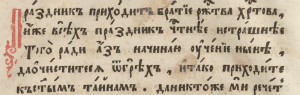 Праздникъ приходитъ братїе рж҃тва хр҃това,
иже всѣхъ праздникъ чтнѣе истрашнѣе
Того ради азъ начинаю оучение нынѣ,
даѡчиститеся ѿгрѣхъ, итако приходите
къст҃ымъ таинамъ. даниктоже ми речетъ